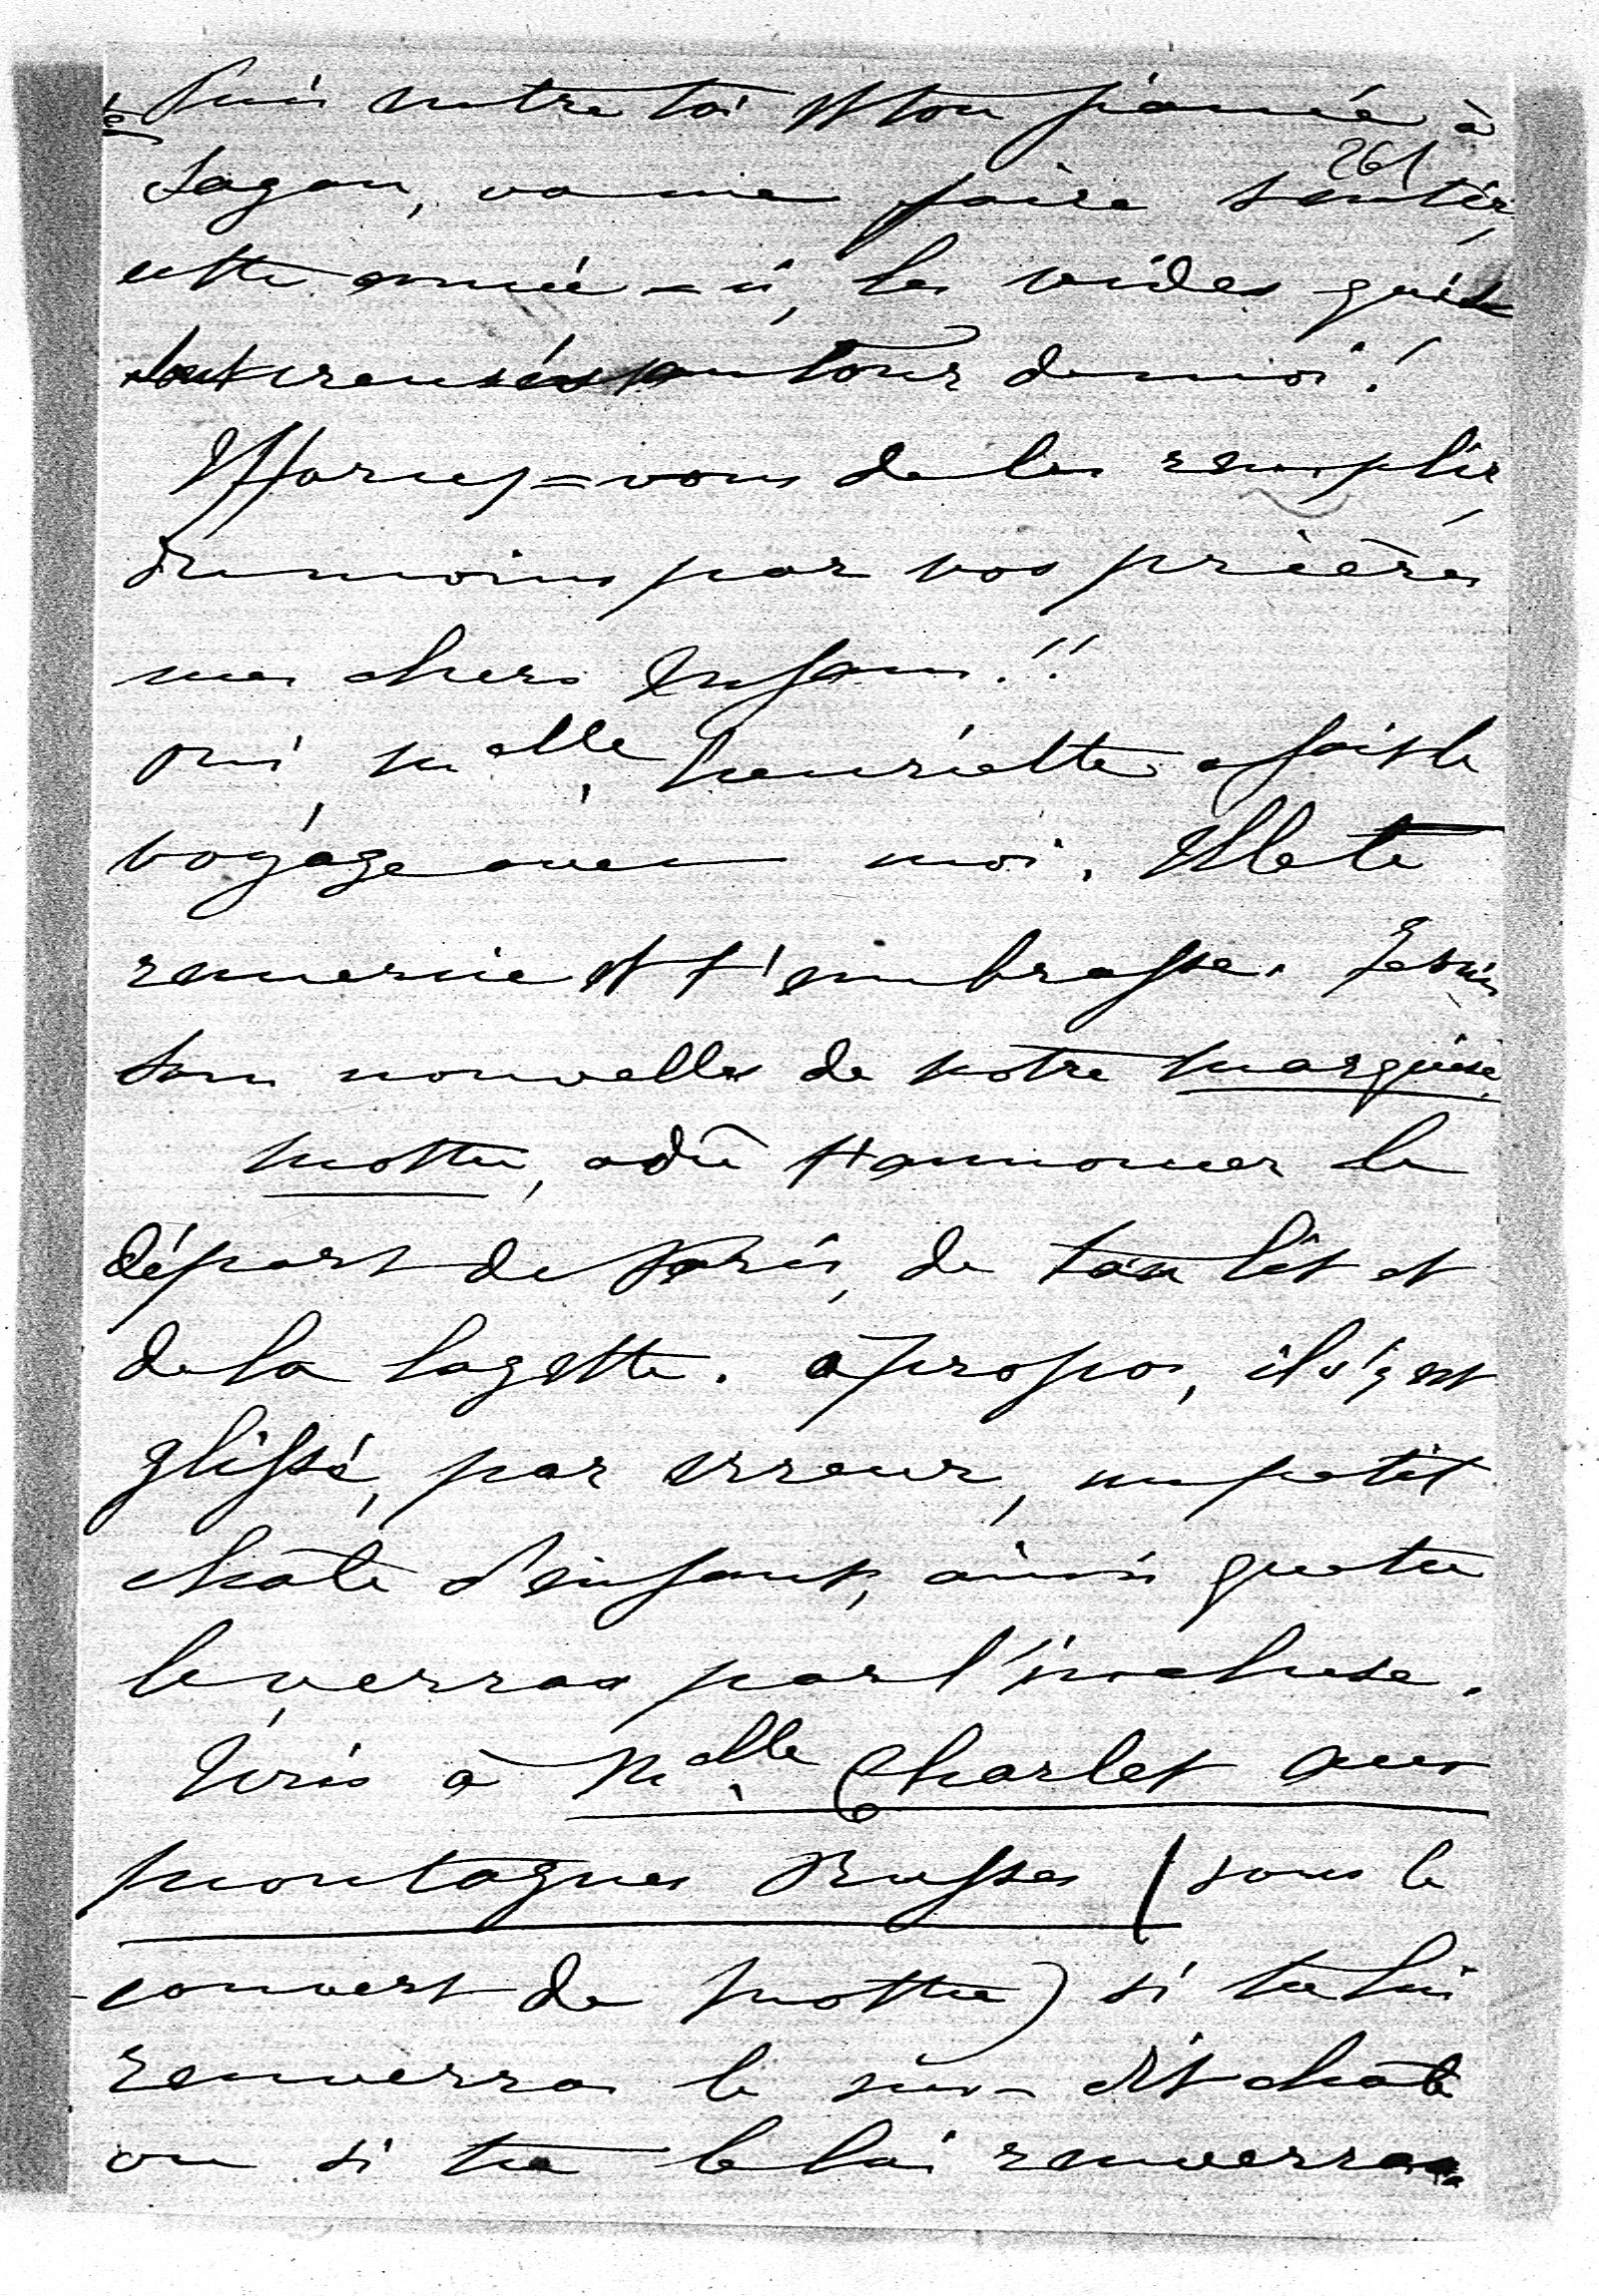 Puis notre toi et ton fiancé à
261
Sagan, va me faire sentir,
cette année-ci, les vides qui se
sont creusés autour de moi!
Efforcez=vous de les remplir,
du moins par vos prières
mes chers Enfans!!
oui, Melle henriette a fait le
voyage avec moi. Elle te
remercie et t'embrasse. Je suis
sans nouvelles de notre marquise.
Motte, a dû t'annoncer le
départ de Paris, de ton lit et
de la layette. à propos, il s'y est
glissé, par erreur, un petit
châle d'enfant, ainsi que tu
le verras par l'incluse.
Écris à Melle Charlet aux
montagnes Russes (sous le
couvert de Motte) si tu lui
renverras le sus-dit châle
ou si tu le lui renverras